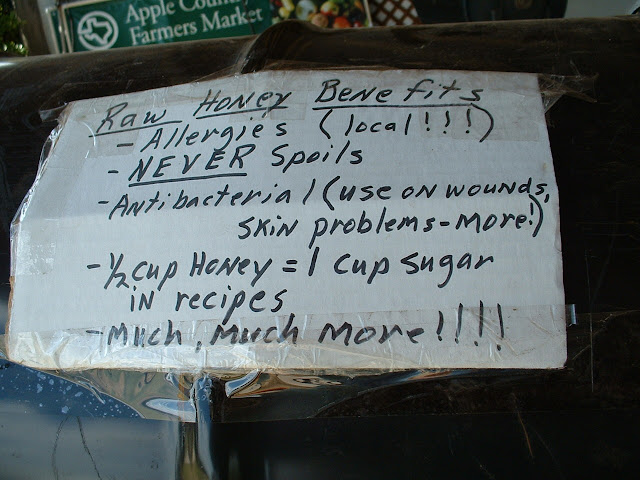 Apple Coun
Farmers Market
Raw Honey Benefits
- Allergies (local!!!)
- NEVER Spoils
- Antibacterial (use on wounds,
skin problems - more!)
- 1/2 cup Honey = 1 cup sugar
in recipes
- Much, much more!!!!